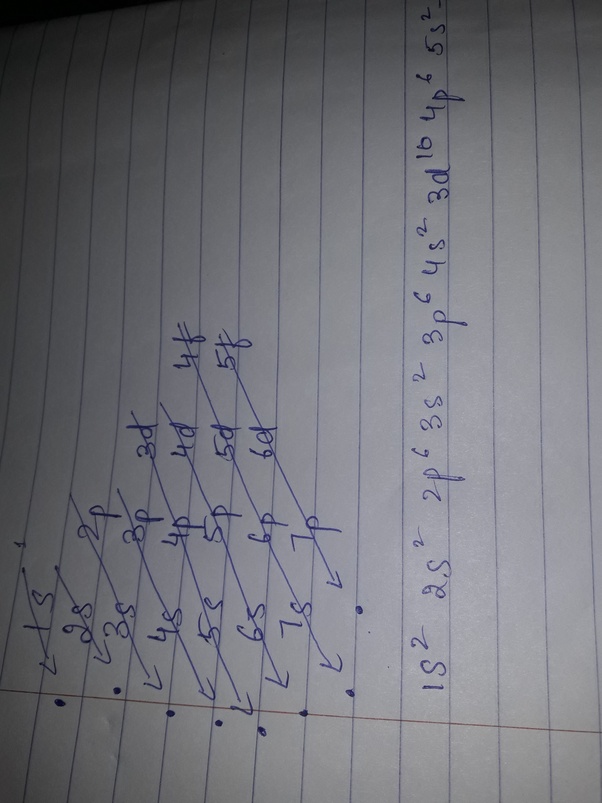 1s
2s 2p
3s 3p 3d
4s 4p 4d 4f
5s 5p 5d 5f
6s 6p 6d
7s 7p
1s² 2s² 2p⁶ 3s² 3p⁶ 4s² 3d¹⁰ 4p⁶ 5s²-